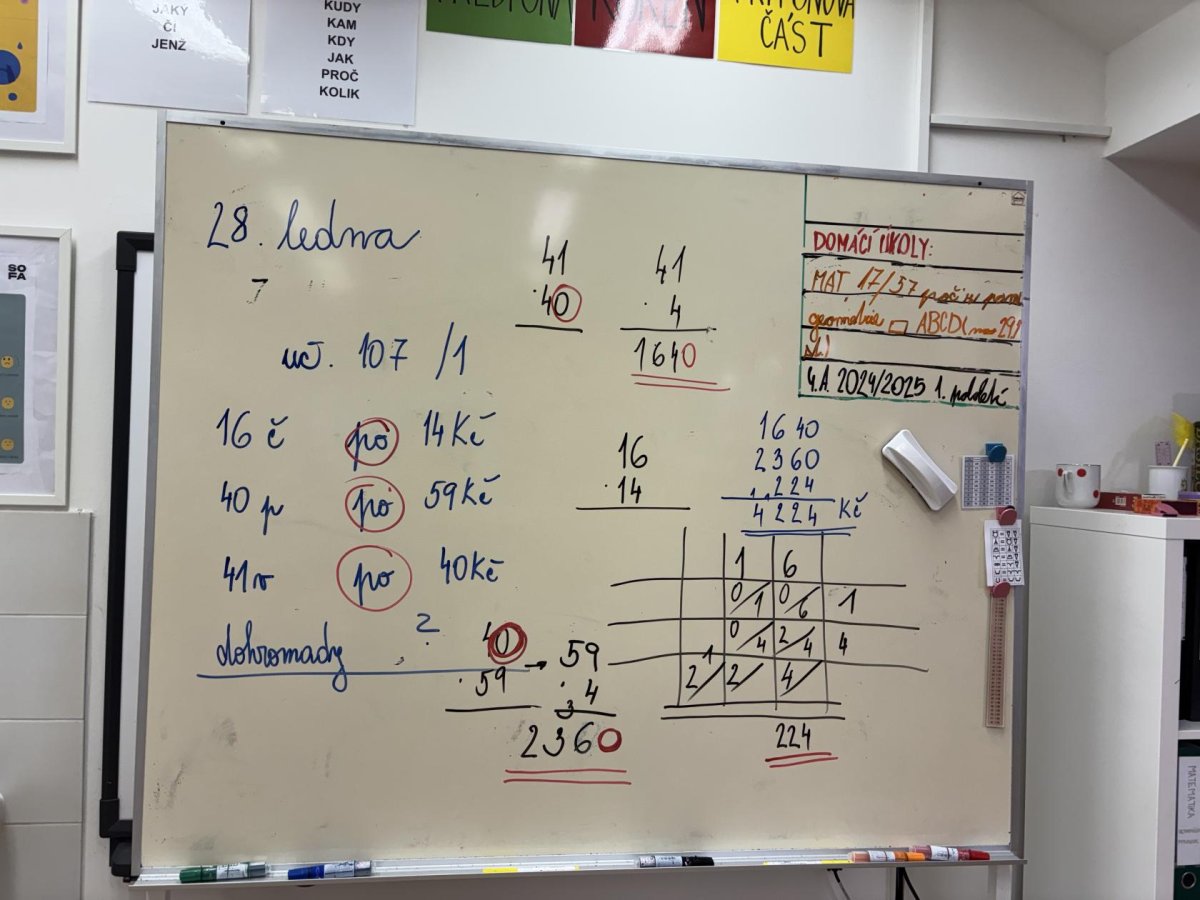 JAKÝ
ČÍ
JENŽ
KUDY
KAM
KDY
JAK
PROČ
KOLIK
ČÁST
SO
FA
28. ledna
7
uč. 107 /1
16 č po 14 Kč
40 p po 59 Kč
41 v po 40 Kč
dohromady ?
41
· 40
41
· 4
1640
16
· 14
1640
2360
224
4224 Kč
40
· 59
→ 59
· 4
3
2360
1 6
0/1 0/6 1
0/4 2/4 4
1
2/ 2/ 4/
224
DOMÁCÍ ÚKOLY:
MAT 17/57
geometrie □ ABCD
4.A 2024/2025 1. pololetí
MATEMATIKA